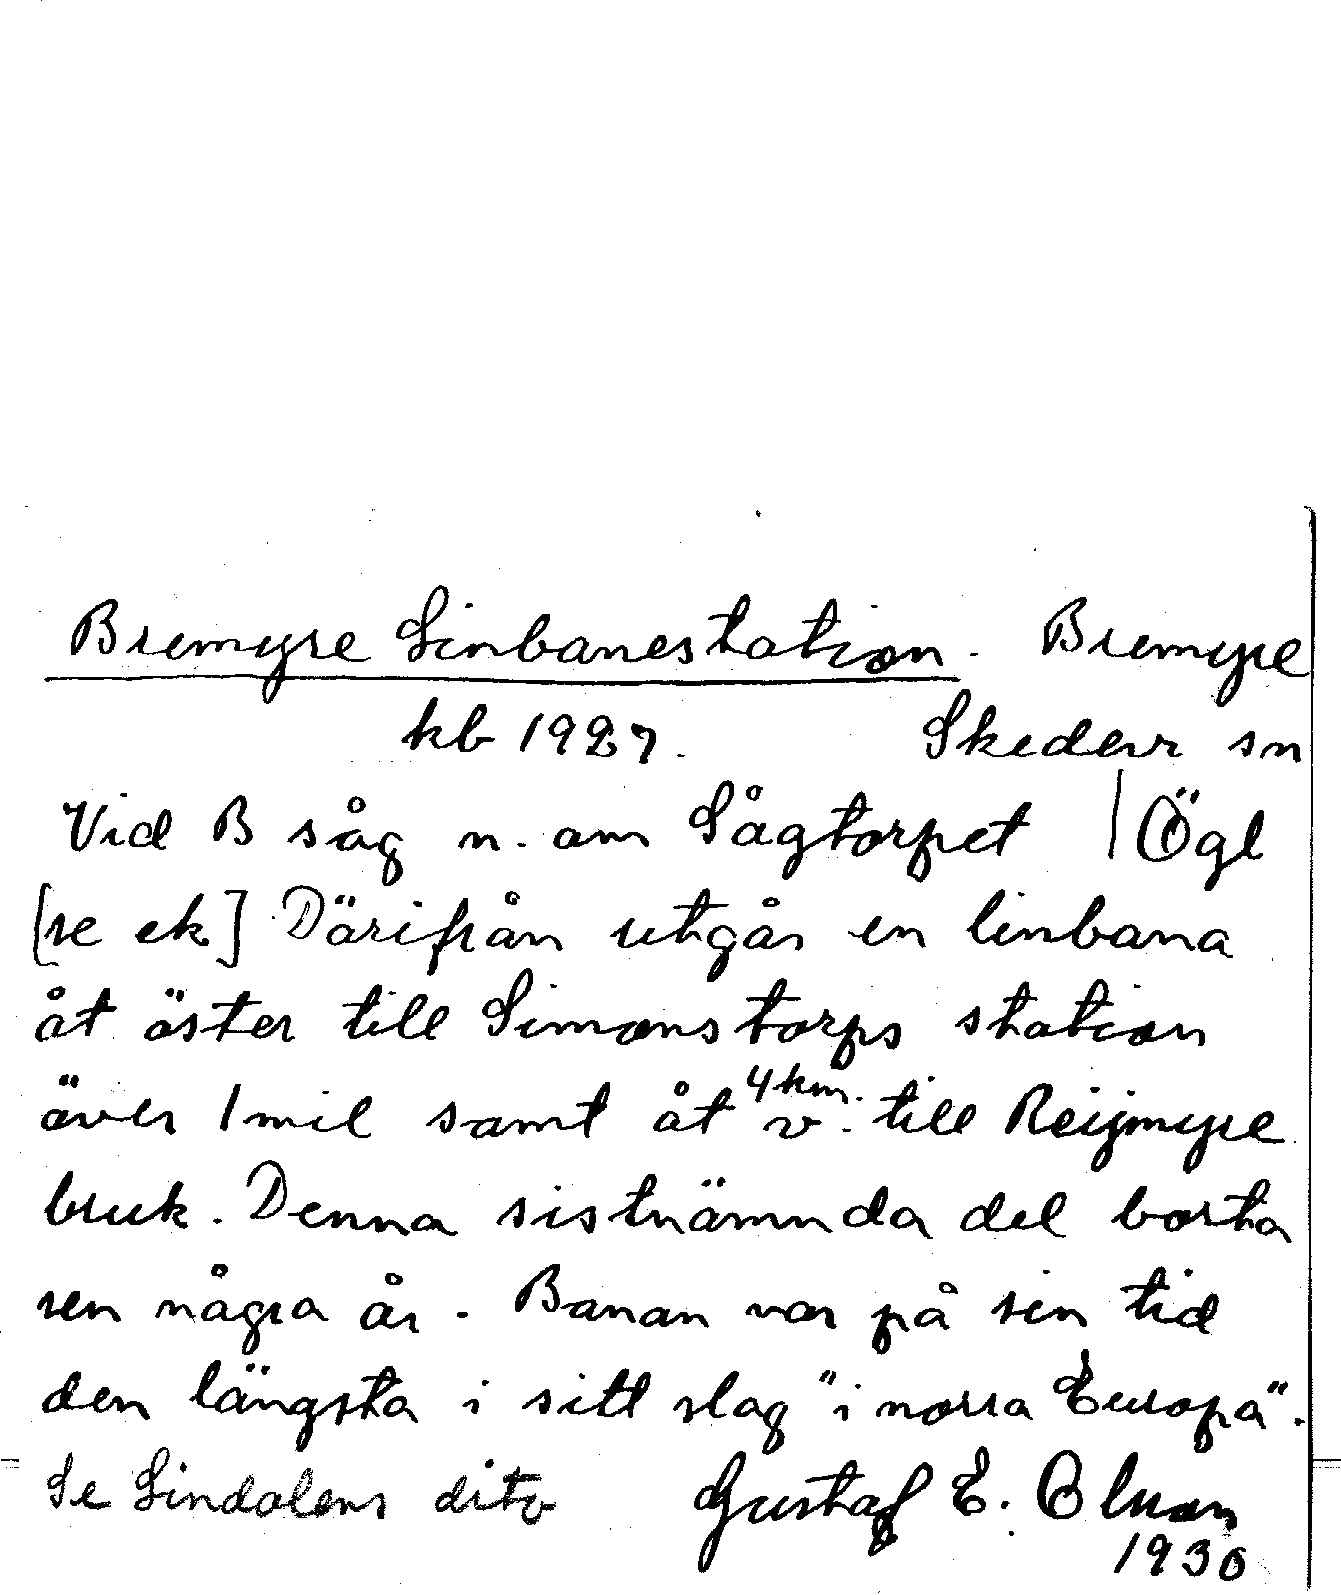 Bremyre Linbanestation. Bremyre
kb 1927. Skedevi sn
Vid B såg n. om Sågtorpet | Ögl
[se ek] Därifrån utgår en linbana
åt öster till Simonstorps station
över 1 mil samt åt v. 4 km. till Reijmyre
bruk. Denna sistnämnda del borta
sen några år. Banan var på sin tid
den längsta i sitt slag "i norra Europa".
Se Lindalens dito Gustaf E. Olsson
1930